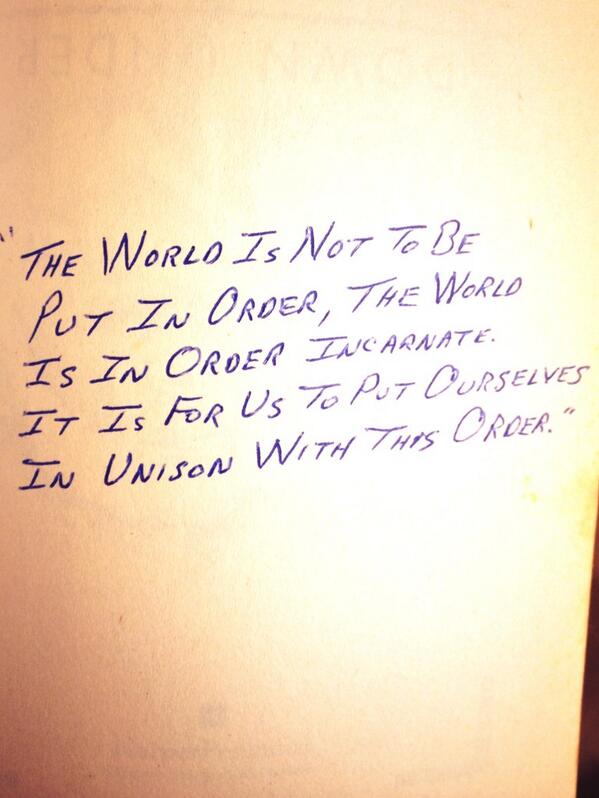 "The World Is Not To Be
Put In Order, The World
Is In Order Incarnate.
It Is For Us To Put Ourselves
In Unison With This Order."